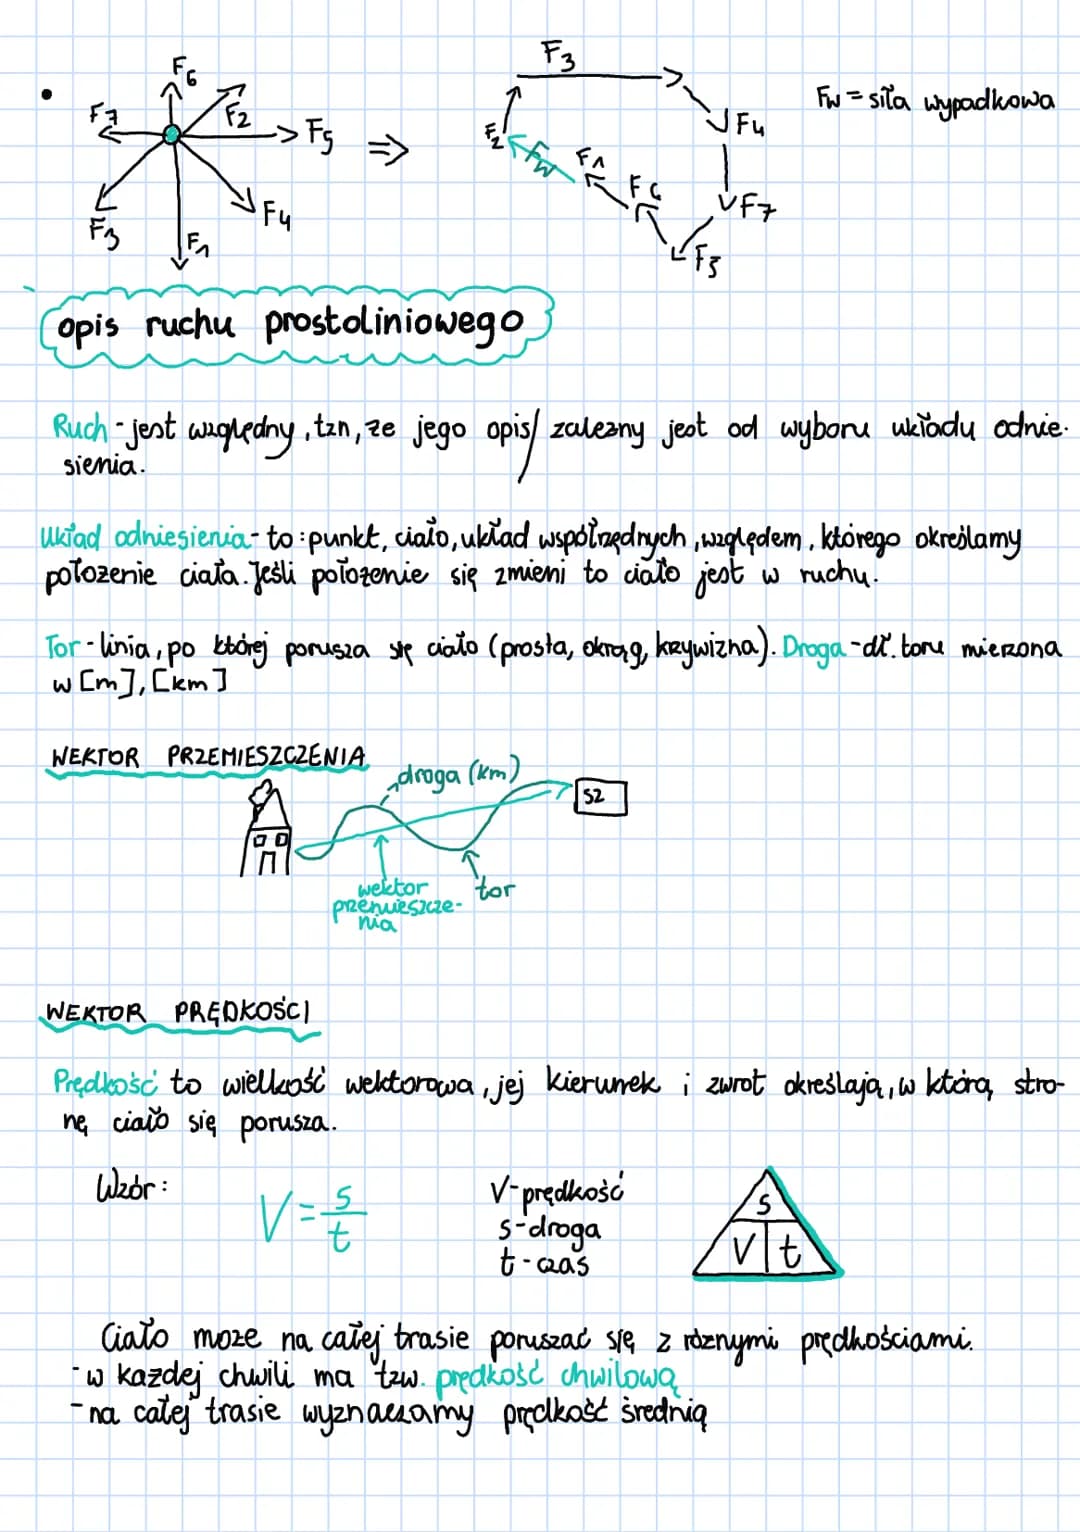 F6
F7
F2
F5
F3
F4
F1
F3
F4
F2
Fw
F1
F6
F7
F5
Fw = siła wypadkowa
opis ruchu prostoliniowego
Ruch - jest względny, tzn, że jego opis/ zależny jest od wyboru układu odnie-
sienia.
Układ odniesienia - to : punkt, ciało, układ współrzędnych, względem, którego określamy
położenie ciała. Jeśli położenie się zmieni to ciało jest w ruchu.
Tor - linia, po której porusza się ciało (prosta, okrąg, krzywizna). Droga - dł. toru mierzona
w [m], [km]
WEKTOR PRZEMIESZCZENIA
droga (km)
SZ
wektor
przemieszcze-
nia
tor
WEKTOR PRĘDKOŚCI
Prędkość to wielkość wektorowa, jej kierunek i zwrot określają, w którą stro-
nę ciało się porusza.
Wzór:
V = s/t
V - prędkość
s - droga
t - czas
s
V t
Ciało może na całej trasie poruszać się z różnymi prędkościami.
- w każdej chwili ma tzw. prędkość chwilową
- na całej trasie wyznaczamy prędkość średnią